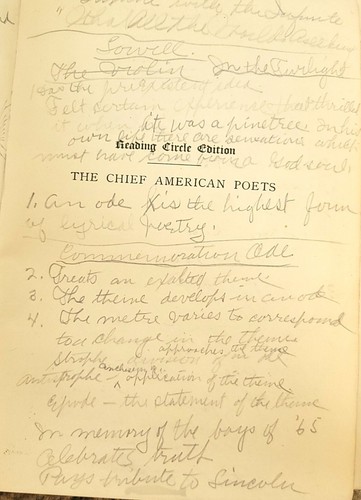 " with the Infinite
And All the World's
Lowell.
The Violin In the Twilight
Has the idea
Felt certain that thrilled
it when it was a pinetree. In his
own life there are sensations which
must have come from a God soul.
Reading Circle Edition
THE CHIEF AMERICAN POETS
1. An ode is the highest form
of lyrical poetry.
Commemoration Ode
2. Treats an exalted theme
3. The theme develops in an ode
4. The metre varies to correspond
to a change in the theme
approaches the theme
Strophe division of an ode
antistrophe - application of the theme
Epode - the statement of the theme
In memory of the boys of '65
Celebrates truth
Pays tribute to Lincoln